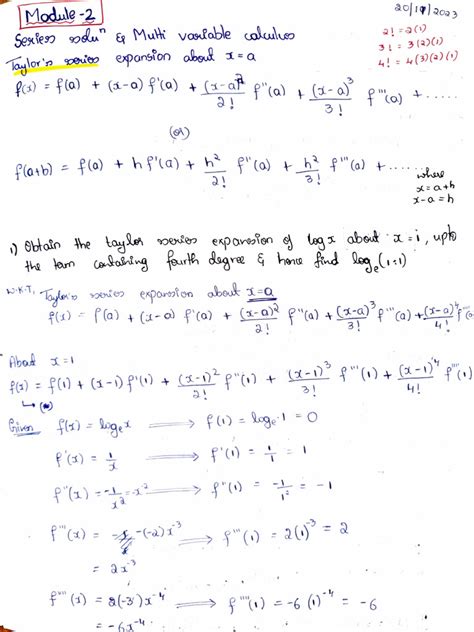 Module-2
20/11/2023
Series soluⁿ & Multi variable calculus
2! = 2(1)
3! = 3(2)(1)
4! = 4(3)(2)(1)
Taylor's series expansion about x=a
f(x) = f(a) + (x-a) f'(a) + (x-a)²/2! f''(a) + (x-a)³/3! f'''(a) + ......
(or)
f(a+h) = f(a) + h f'(a) + h²/2! f''(a) + h²/3! f'''(a) + ......
where
x = a+h
x-a = h
1) Obtain the taylor series expansion of log x about x=1, upto
the term containing fourth degree & hence find logₑ(1.1)
W.K.T, Taylor's series expansion about x=a
f(x) = f(a) + (x-a) f'(a) + (x-a)²/2! f''(a) + (x-a)³/3! f'''(a) + (x-a)⁴/4! f''''(a)
About x=1
f(x) = f(1) + (x-1) f'(1) + (x-1)²/2! f''(1) + (x-1)³/3! f'''(1) + (x-1)⁴/4! f''''(1)
Given f(x) = logₑx ⟹ f(1) = logₑ1 = 0
f'(x) = 1/x ⟹ f'(1) = 1/1 = 1
f''(x) = -1/x² = -x⁻² ⟹ f''(1) = -1/1² = -1
f'''(x) = -(-2)x⁻³ ⟹ f'''(1) = 2(1)⁻³ = 2
= 2x⁻³
f''''(x) = 2(-3)x⁻⁴ ⟹ f''''(1) = -6(1)⁻⁴ = -6
= -6x⁻⁴